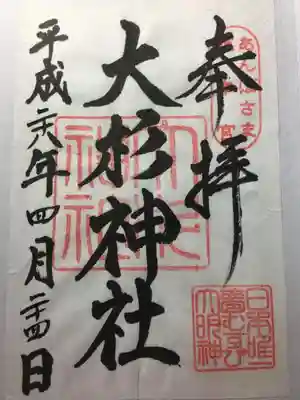 奉拝
あんばさま
宮
大杉神社
大杉
神社
平成二十八年四月二十四日
日本唯
大明神